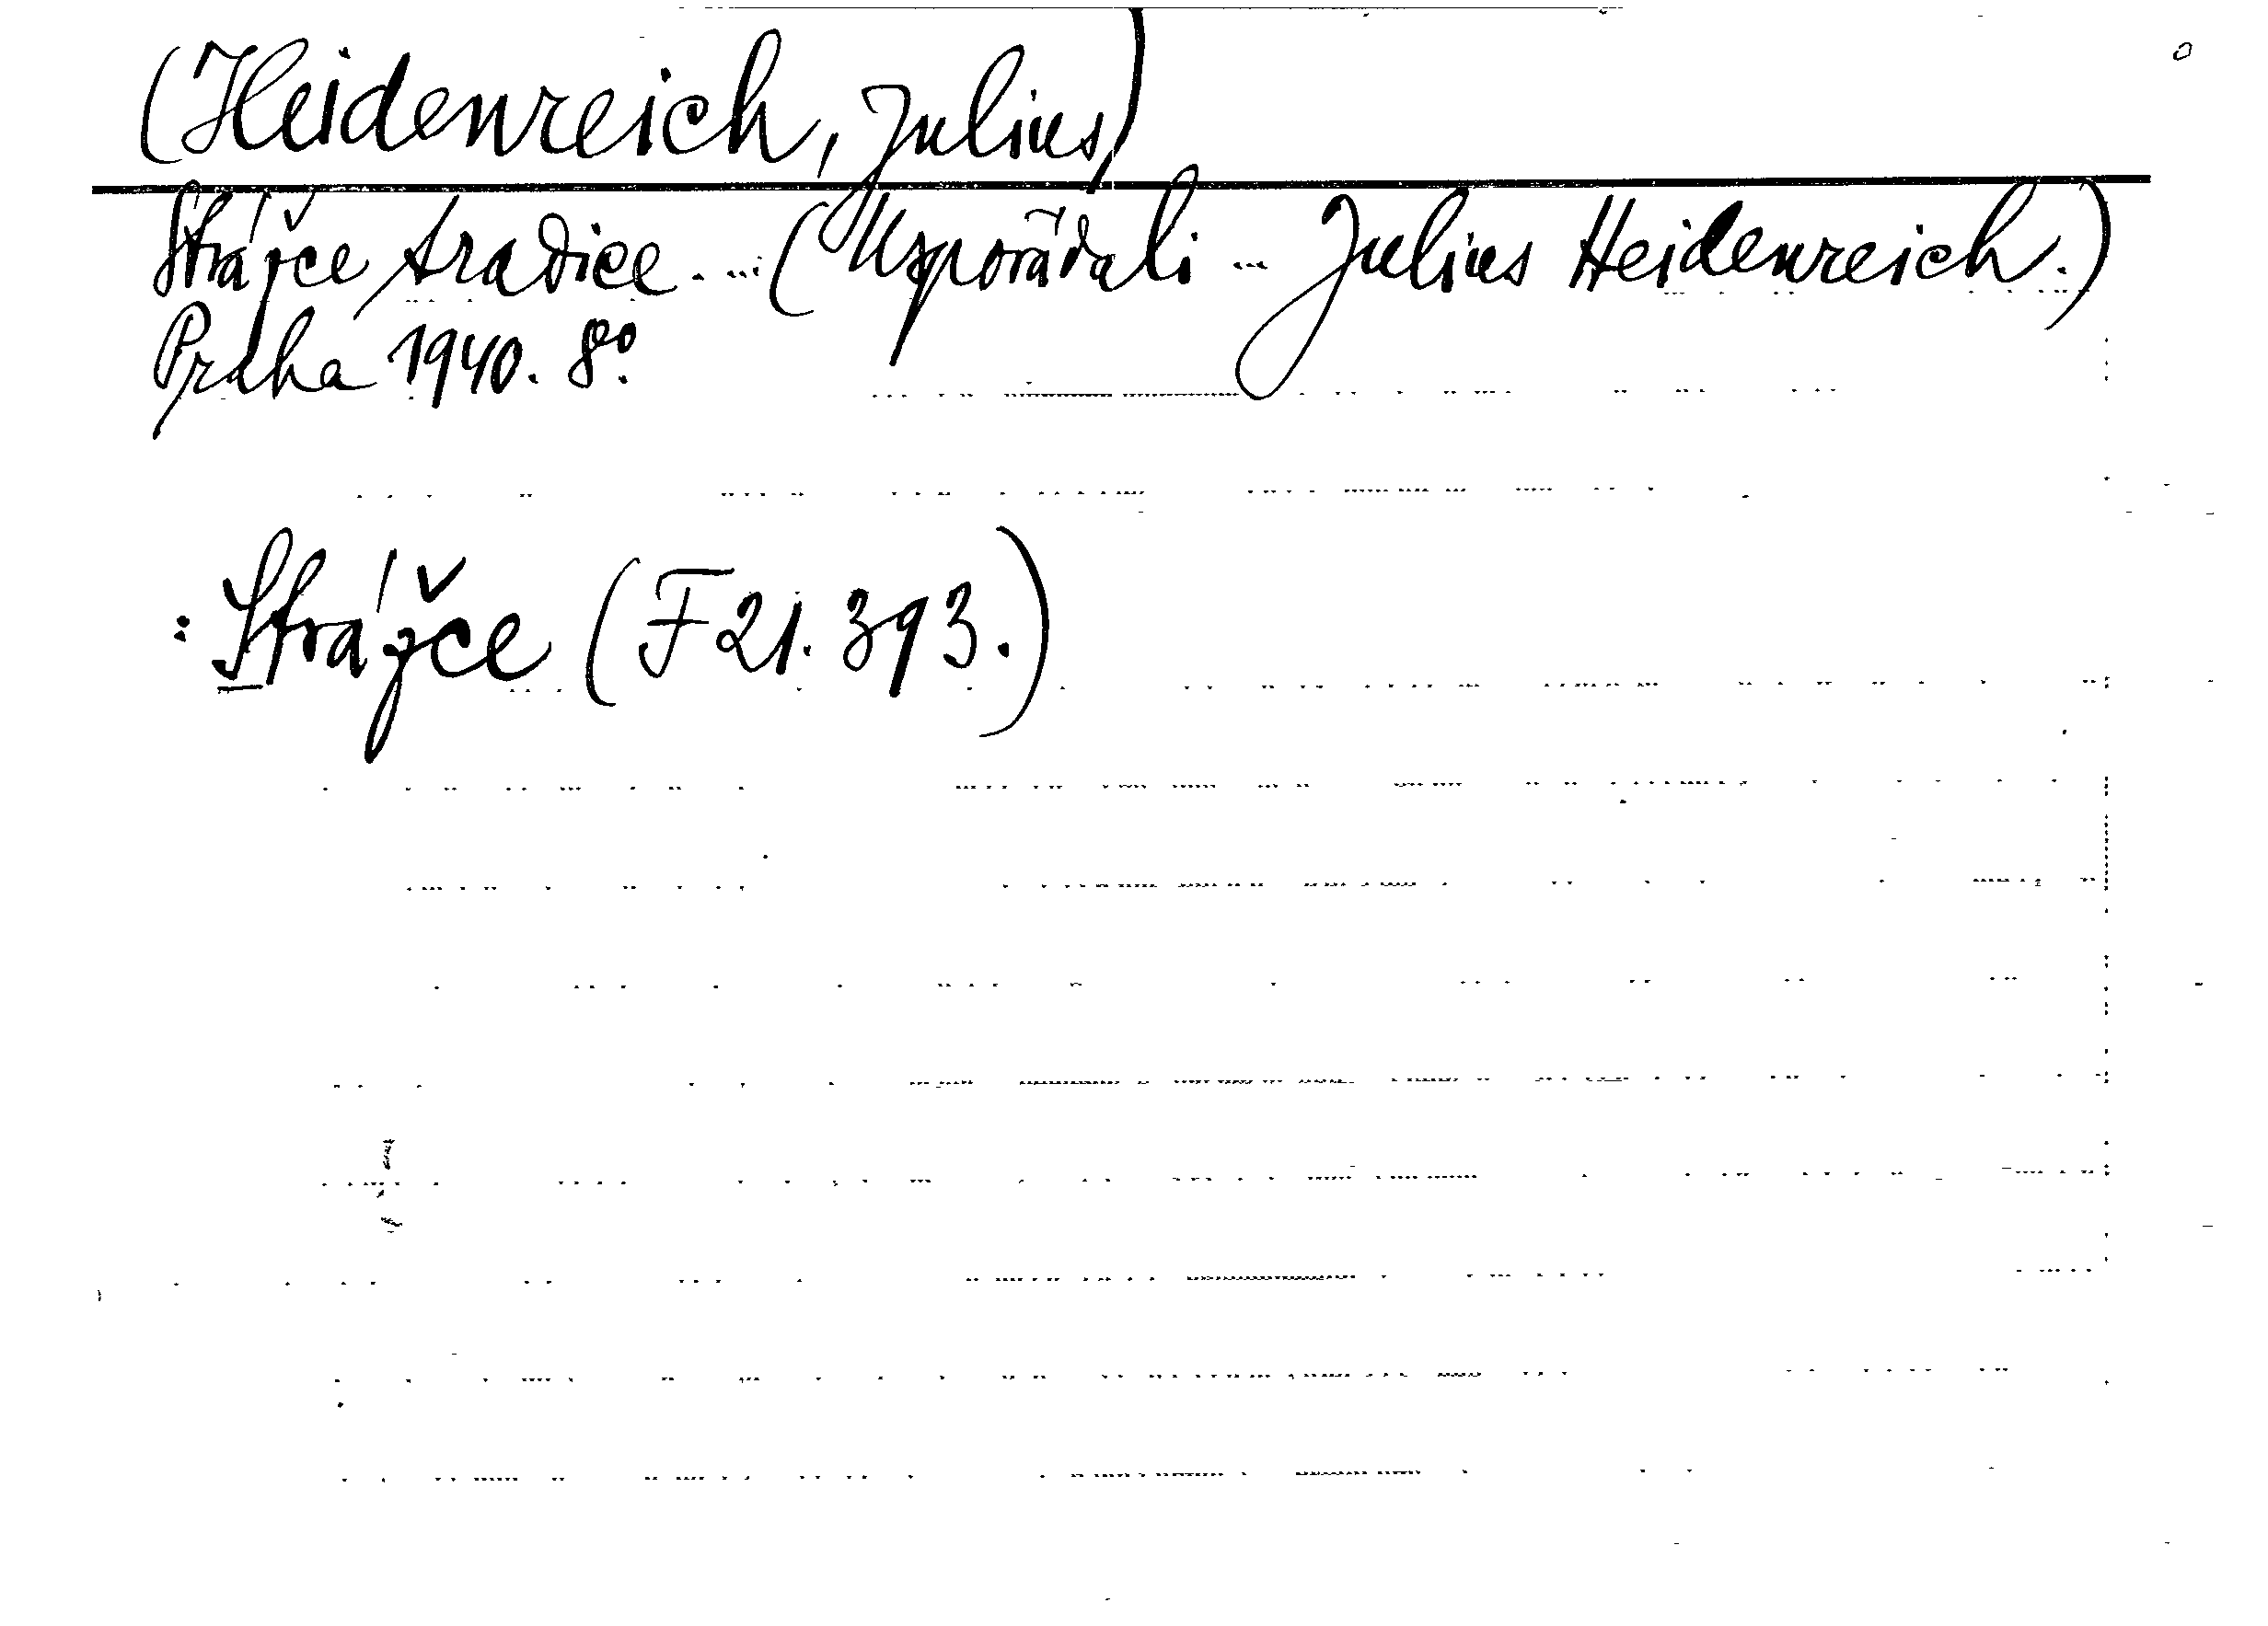 (Heidenreich, Julius)
Strážce tradice. ... (Uspořádali ... Julius Heidenreich.)
Praha 1940. 8°.
: Strážce (F 21.393.)